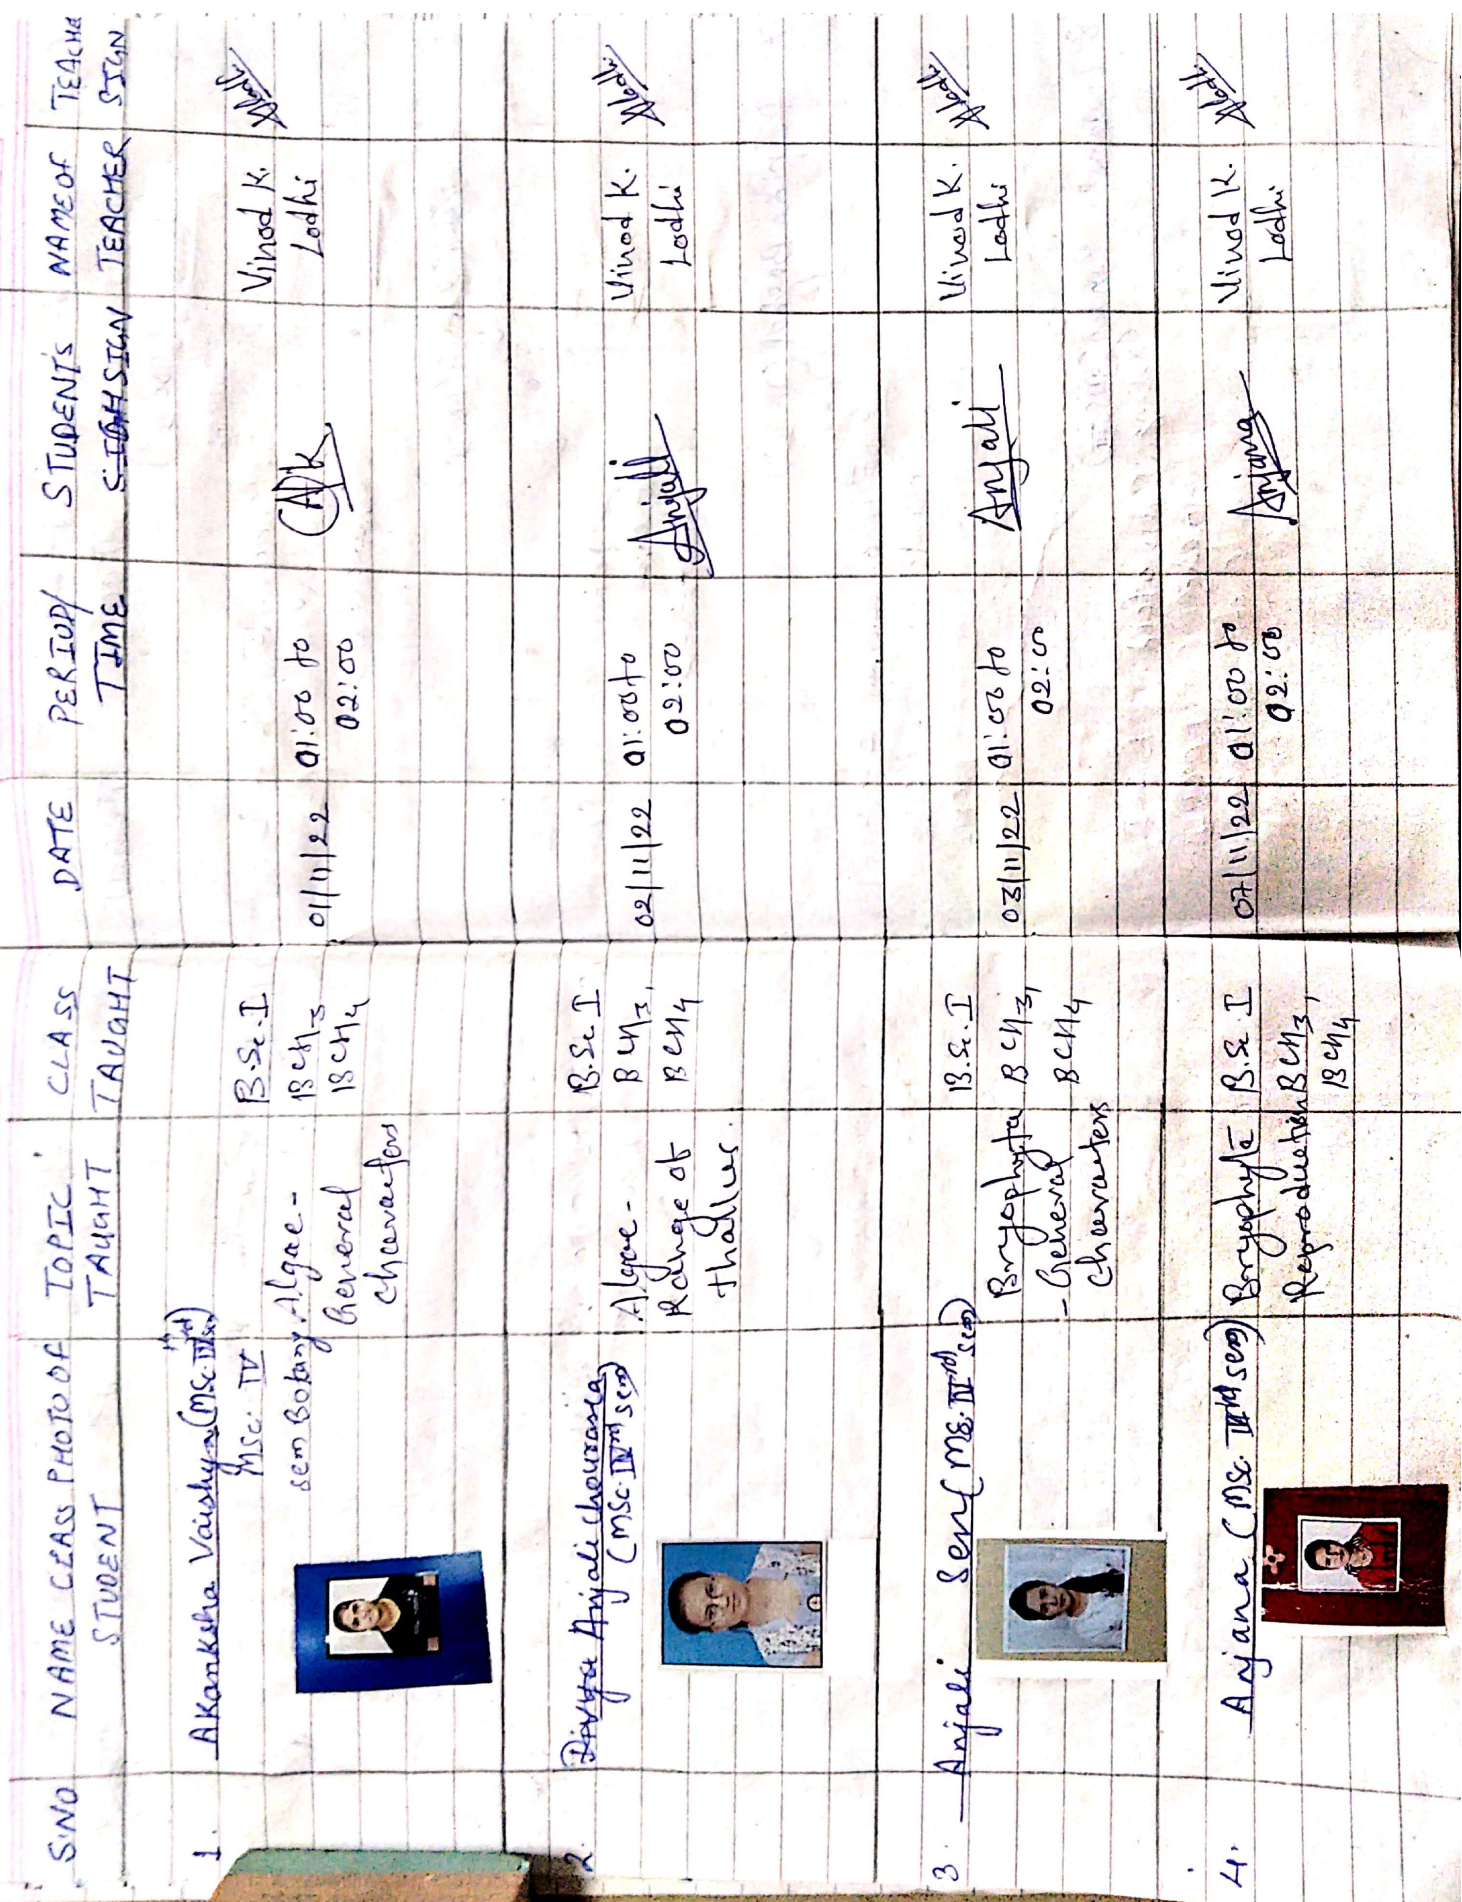 S.NO NAME CLASS PHOTO OF STUDENT TOPIC TAUGHT CLASS TAUGHT DATE PERIOD/ TIME STUDENT'S SIGN NAME OF TEACHER TEACHER SIGN
1. Akanksha Vaishya (MSc.
MSc. IV
sem Botany
Algae -
General
Characters
B.Sc. I
BCH3
BCH4
01/11/22
01:00 to
02:00
Vinod K.
Lodhi
2. Divya Anjali Chourasia
(MSc. IV sem)
Algae -
Range of
thallus.
B.Sc I
BCH3,
BCH4
02/11/22
01:00 to
02:00
Anjali
Vinod K.
Lodhi
3. Anjali Sen (MSc. IV sem)
Bryophyta
- General
Characters
B.Sc. I
BCH3,
BCH4
03/11/22
01:00 to
02:00
Anjali
Vinod K.
Lodhi
4. Anjana (MSc. sem)
Bryophyta
Reproduction
B.Sc. I
BCH3,
BCH4
07/11/22
01:00 to
02:00
Anjana
Vinod K.
Lodhi